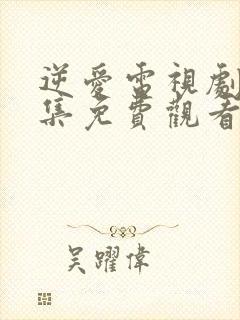 逆愛電視劇
集免費觀看
吴躍偉